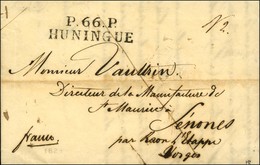 P.66.P.
HUNINGUE
12.
Monsieur Vautrin
Directeur de la Manufacture de
St Maurice à
Sénones
franco par Raon l'Etappe
Vosges